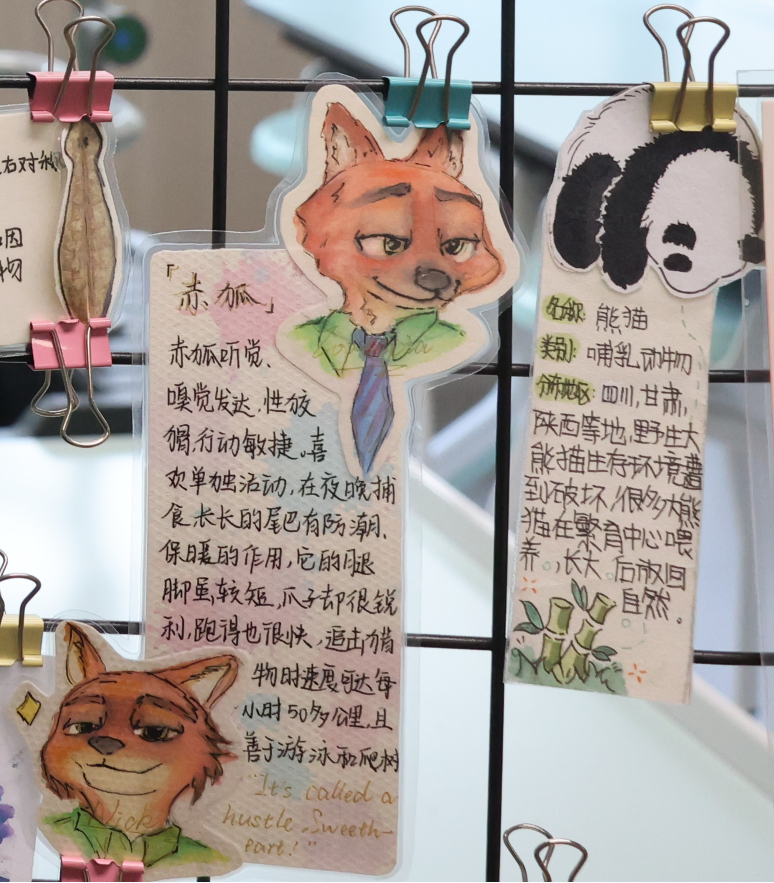 右对称
因
物
「赤狐」
赤狐听觉、
嗅觉发达，性狡
猾，行动敏捷。喜
欢单独活动，在夜晚捕
食，长长的尾巴有防潮、
保暖的作用，它的腿
脚虽较短，爪子却很锐
利，跑得也很快，追击猎
物时速度可达每
小时50多公里，且
善于游泳和爬树
"It's called a
hustle, Sweeth-
eart!"
Nick
名称: 熊猫
类别: 哺乳动物
分布地区: 四川，甘肃，
陕西等地，野生大
熊猫生存环境遭
到破坏，很多大熊
猫在繁育中心喂
养，长大后放回
自然。